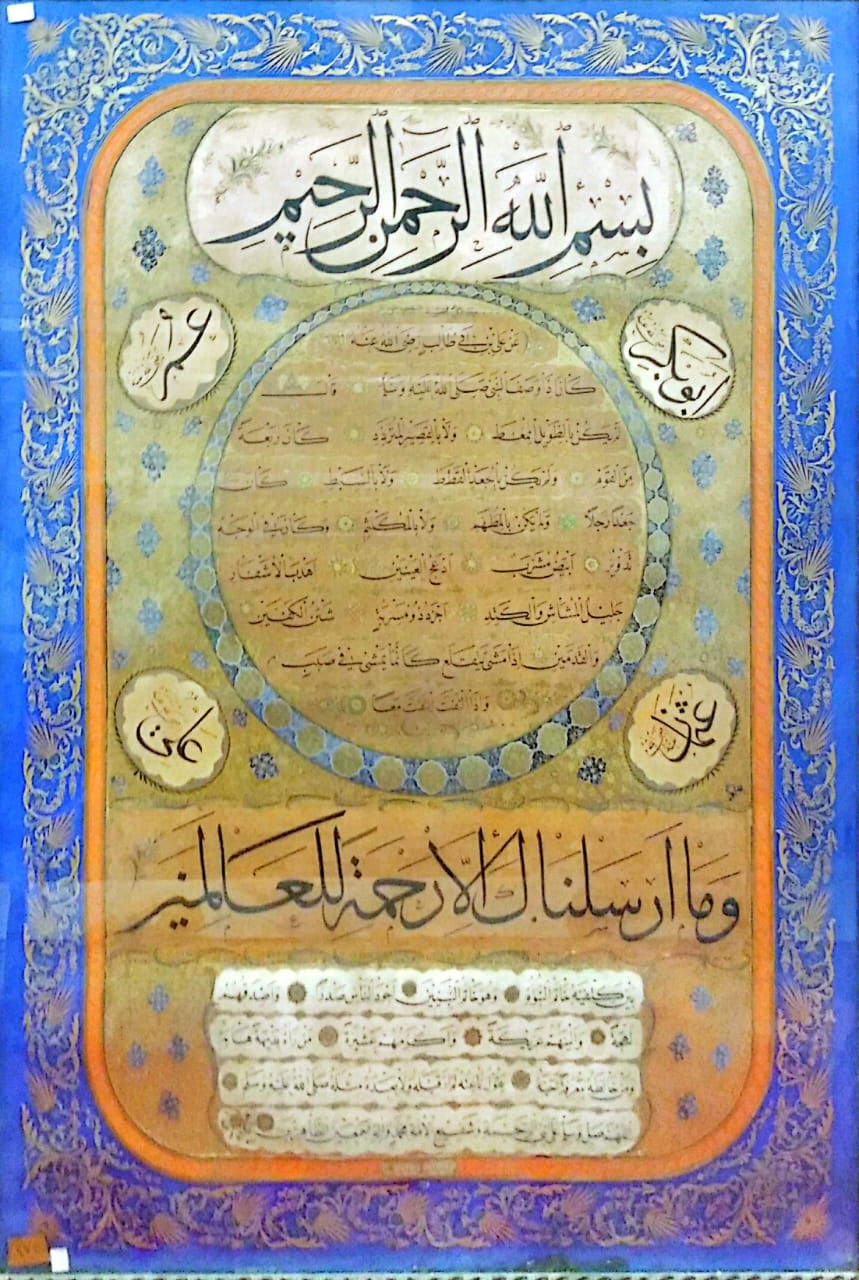 بِسْمِ اللّٰهِ الرَّحْمٰنِ الرَّحِيمِ
ابوبكر
عمر
عن علي بن ابي طالب رضي الله عنه
كان اذا وصف النبي صلى الله عليه وسلم قال
لم يكن بالطويل الممغط ولا بالقصير المتردد كان ربعة
من القوم ولم يكن بالجعد القطط ولا بالسبط كان
جعدا رجلا ولم يكن بالمطهم ولا بالمكلثم وكان في الوجه
تدوير ابيض مشرب ادعج العينين اهدب الاشفار
جليل المشاش والكتد اجرد ذو مسربة شثن الكفين
والقدمين اذا مشى يتقلع كأنما يمشي في صبب
واذا التفت التفت معا
عثمان
علي
وما ارسلناك الا رحمة للعالمين
بين كتفيه خاتم النبوة وهو خاتم النبيين اجود الناس صدرا واصدقهم
لهجة والينهم عريكة واكرمهم عشيرة من رآه بديهة هابه
ومن خالطه معرفة احبه يقول ناعته لم ار قبله ولا بعده مثله صلى الله عليه وسلم
اللهم صل وسلم على نبي الرحمة وشفيع الامة محمد وآله اجمعين الطاهرين